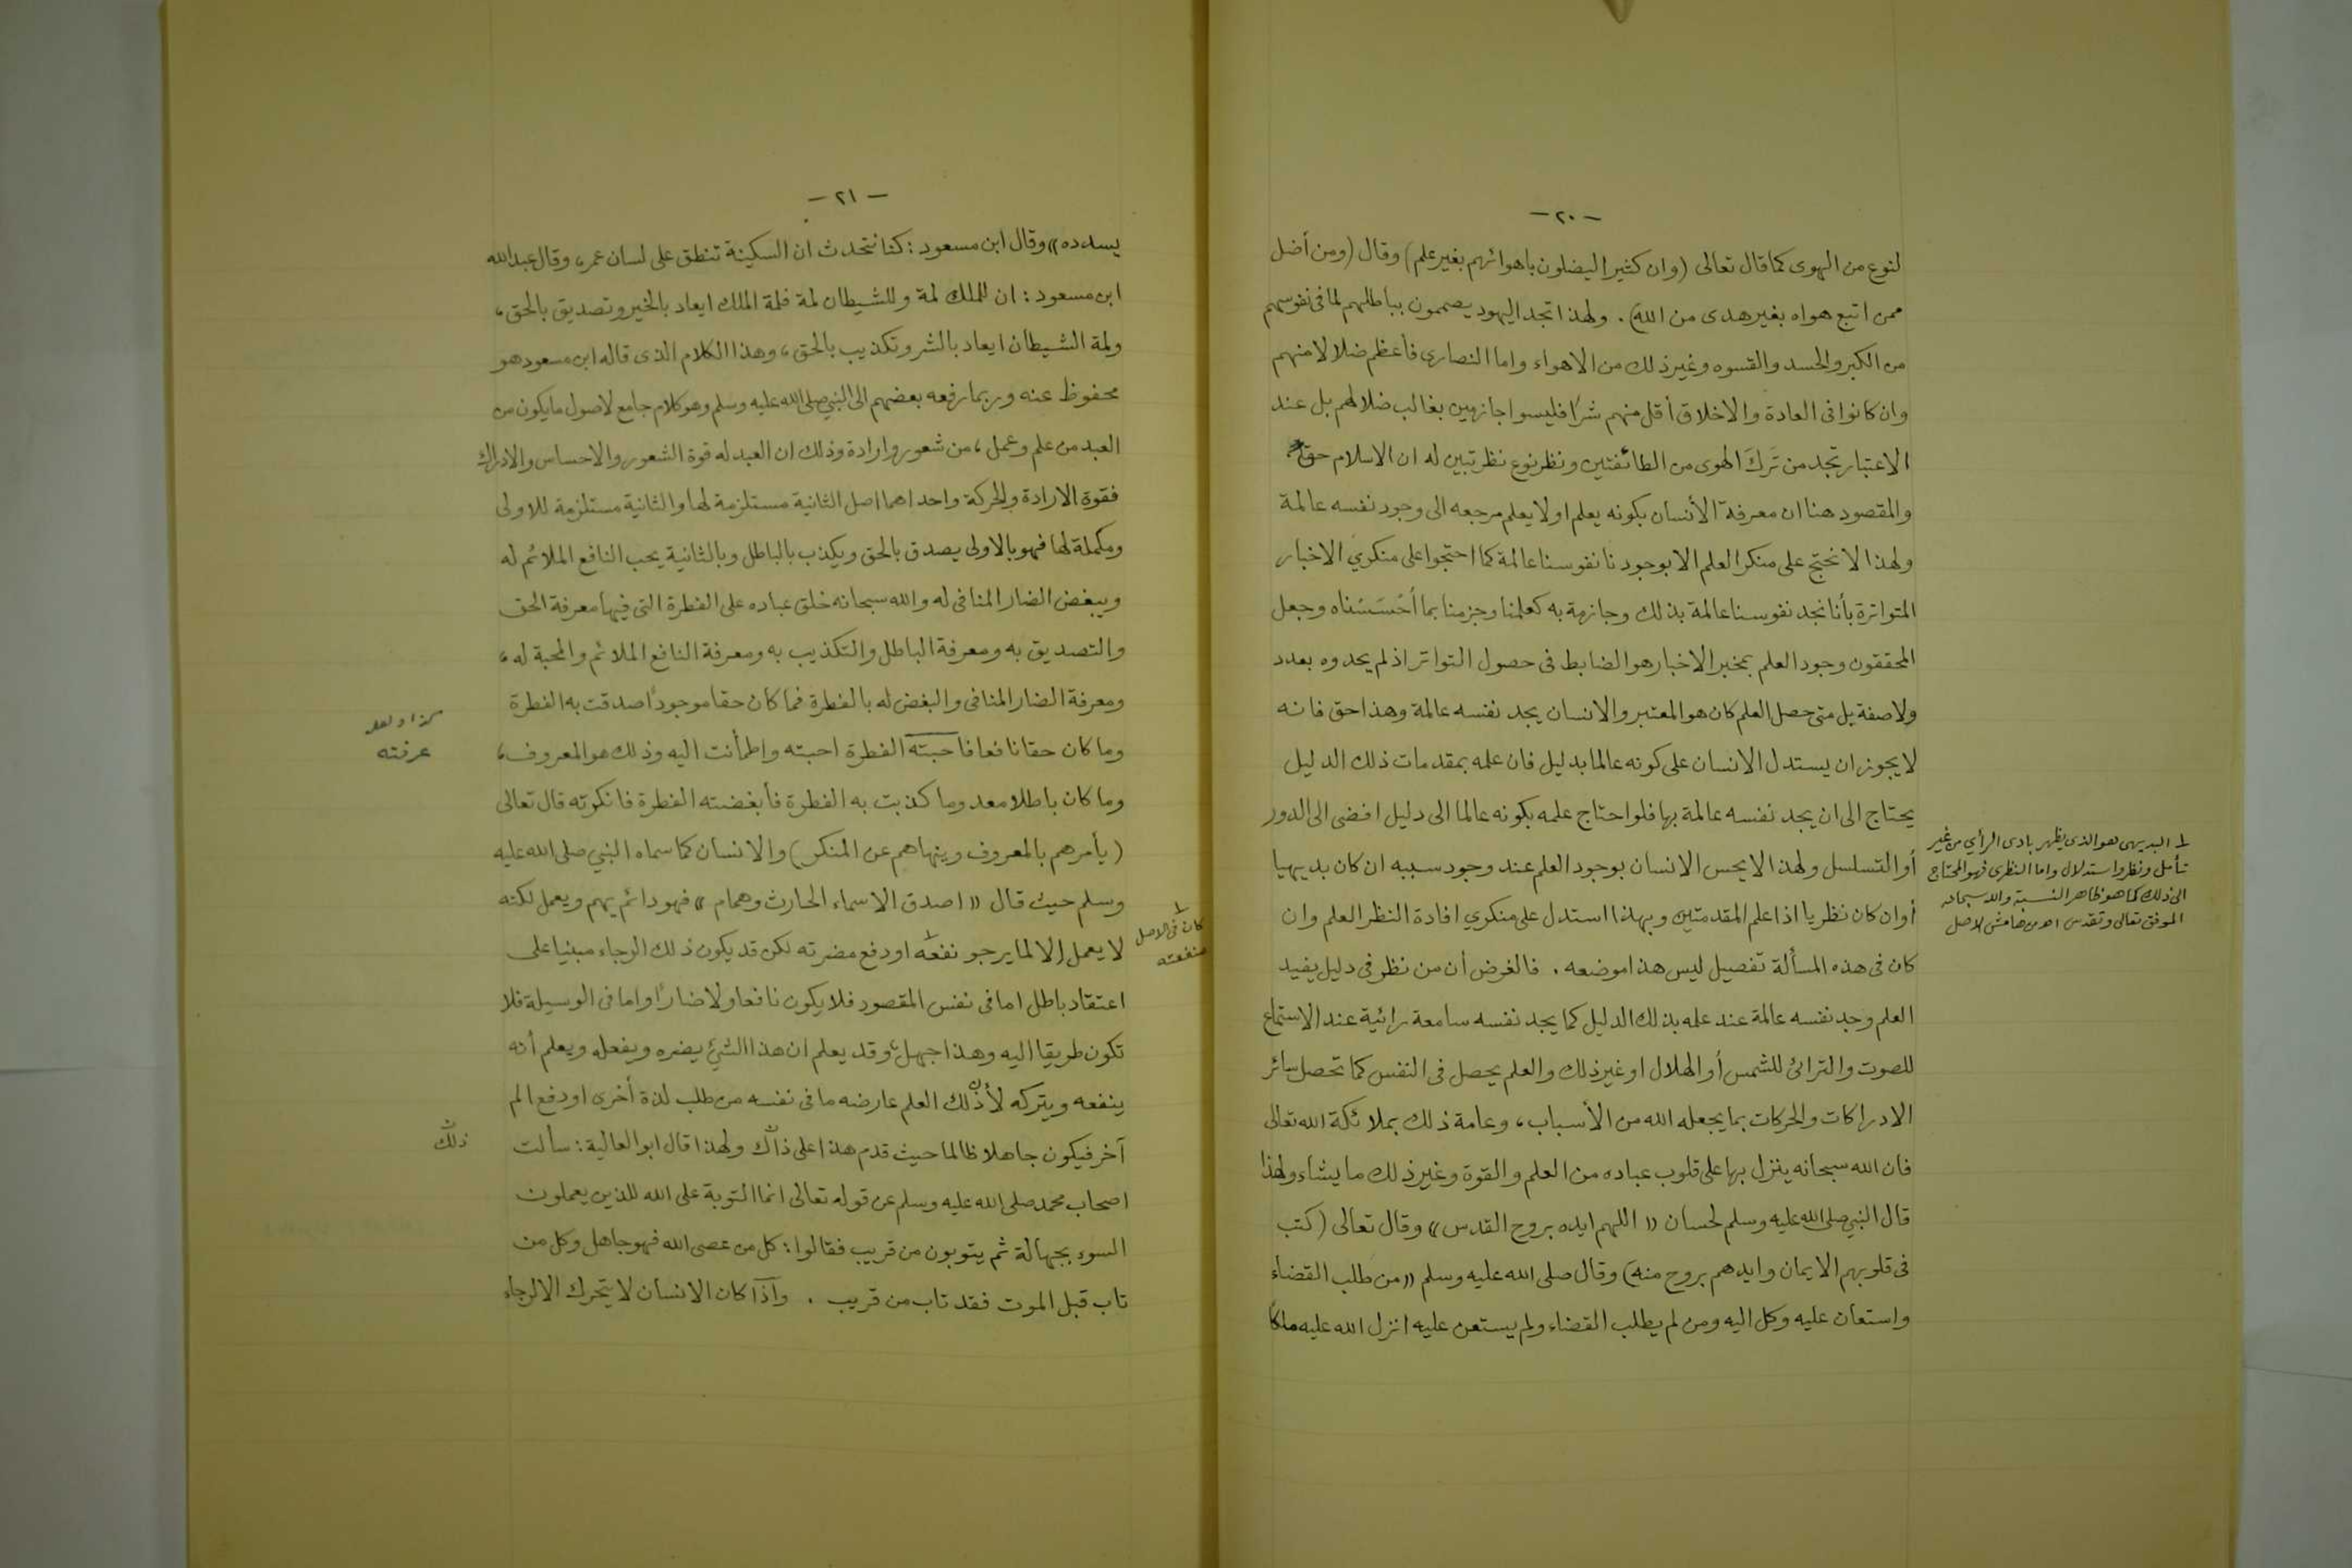 - ٢٠ -
لنوع من الهوى كما قال تعالى (وان كثيرا ليضلون باهوائهم بغير علم) وقال (ومن أضل
ممن اتبع هواه بغير هدى من الله). ولهذا تجد اليهود يصممون بباطلهم لما فى نفوسهم
من الكبر والحسد والقسوه وغير ذلك من الاهواء واما النصارى فأعظم ضلالا منهم
وان كانوا فى العادة والاخلاق أقل منهم شرًا فليسوا جازمين بغالب ضلالهم بل عند
الاعتبار تجد من تَركَ الهوى من الطائفتين ونظر نوع نظر تبين له ان الاسلام حق
والمقصود هنا ان معرفة الأنسان بكونه يعلم او لا يعلم مرجعه الى وجود نفسه عالمة
ولهذا لا نحتج على منكر العلم الا بوجودنا نفوسنا عالمة كما احتجوا على منكري الاخبار
المتواترة بأنا نجد نفوسنا عالمة بذلك وجازمة به كعلمنا وجزمنا بما أحْسَسْناه وجعل
المحققون وجود العلم بمخبر الاخبار هو الضابط فى حصول التواتر اذ لم يحدوه بعدد
ولا صفة بل متى حصل العلم كان هو المعتبر والانسان يجد نفسه عالمة وهذا حق فانه
لا يجوز ان يستدل الانسان على كونه عالما بدليل فان علمه بمقدمات ذلك الدليل
يحتاج الى ان يجد نفسه عالمة بها فلو احتاج علمه بكونه عالما الى دليل افضى الى الدور
أو التسلسل ولهذا لا يحس الانسان بوجود العلم عند وجود سببه ان كان بديهيا
أو ان كان نظريا اذا علم المقدمتين وبهذا استدل على منكري افادة النظر العلم وان
كان فى هذه المسألة تفصيل ليس هذا موضعه . فالغرض أن من نظر فى دليل يفيد
العلم وجد نفسه عالمة عند علمه بذلك الدليل كما يجد نفسه سامعة رائية عند الاستماع
للصوت والترائى للشمس أو الهلال او غير ذلك والعلم يحصل فى النفس كما تحصل سائر
الادراكات والحركات بما يجعله الله من الأسباب، وعامة ذلك بملائكة الله تعالى
فان الله سبحانه ينزل بها على قلوب عباده من العلم والقوة وغير ذلك ما يشاء ولهذا
قال النبي صلى الله عليه وسلم لحسان «اللهم ايده بروح القدس» وقال تعالى (كتب
فى قلوبهم الايمان وايدهم بروح منه) وقال صلى الله عليه وسلم «من طلب القضاء
واستعان عليه وكل اليه ومن لم يطلب القضاء ولم يستعن عليه انزل الله عليه ملكًا
١ البديهى هو الذى يظهر بادى الرأي من غير
تأمل ونظر واستدلال واما النظرى فهو المحتاج
الى ذلك كما هو ظاهر النسبة والله سبحانه
الموفق تعالى وتقدس اهـ من هامش الاصل
- ٢١ -
يسدده» وقال ابن مسعود : كنا نتحدث ان السكينة تنطق على لسان عمر، وقال عبد الله
ابن مسعود : ان للملك لمة وللشيطان لمة فلمة الملك ايعاد بالخير وتصديق بالحق،
ولمة الشيطان ايعاد بالشر وتكذيب بالحق، وهذا الكلام الذى قاله ابن مسعود هو
محفوظ عنه وربما رفعه بعضهم الى النبي صلى الله عليه وسلم وهو كلام جامع لاصول ما يكون من
العبد من علم وعمل، من شعور وارادة وذلك ان العبد له قوة الشعور والاحساس والادراك
فقوة الارادة والحركة واحداهما اصل الثانية مستلزمة لها والثانية مستلزمة للاولى
ومكملة لها فهو بالاولى يصدق بالحق ويكذب بالباطل وبالثانية يحب النافع الملائم له
ويبغض الضار المنافى له والله سبحانه خلق عباده على الفطرة التى فيها معرفة الحق
والتصديق به ومعرفة الباطل والتكذيب به ومعرفة النافع الملائم والمحبة له،
ومعرفة الضار المنافى والبغض له بالفطرة فما كان حقا موجودًا صدقت به الفطرة
وما كان حقا نافعا فاحبته الفطرة احبته واطمأنت اليه وذلك هو المعروف،
وما كان باطلا معدوما كذبت به الفطرة فأبغضته الفطرة فانكرته قال تعالى
(يأمرهم بالمعروف وينهاهم عن المنكر) والانسان كما سماه النبي صلى الله عليه
وسلم حيث قال «اصدق الاسماء الحارث وهمام» فهو دائم يهم ويعمل لكنه
لا يعمل إلا لما يرجو نفعه١ او دفع مضرته لكن قد يكون ذلك الرجاء مبنيا على
اعتقاد باطل اما فى نفس المقصود فلا يكون نافعا ولا ضارًا واما فى الوسيلة فلا
تكون طريقا اليه وهذا جهل، وقد يعلم ان هذا الشئ يضره ويفعله ويعلم أنه
ينفعه ويتركه لأن ذلك العلم عارضه ما فى نفسه من طلب لذة أخرى او دفع الم
آخر فيكون جاهلا ظالما حيث قدم هذا على ذاك ولهذا قال ابو العالية : سألت
اصحاب محمد صلى الله عليه وسلم عن قوله تعالى انما التوبة على الله للذين يعملون
السوء بجهالة ثم يتوبون من قريب فقالوا : كل من عصى الله فهو جاهل وكل من
تاب قبل الموت فقد تاب من قريب . واذا كان الانسان لا يتحرك الا لرجاء
كذا ولعله
عرفته
١
كان فى الاصل
منفعته
ذلك